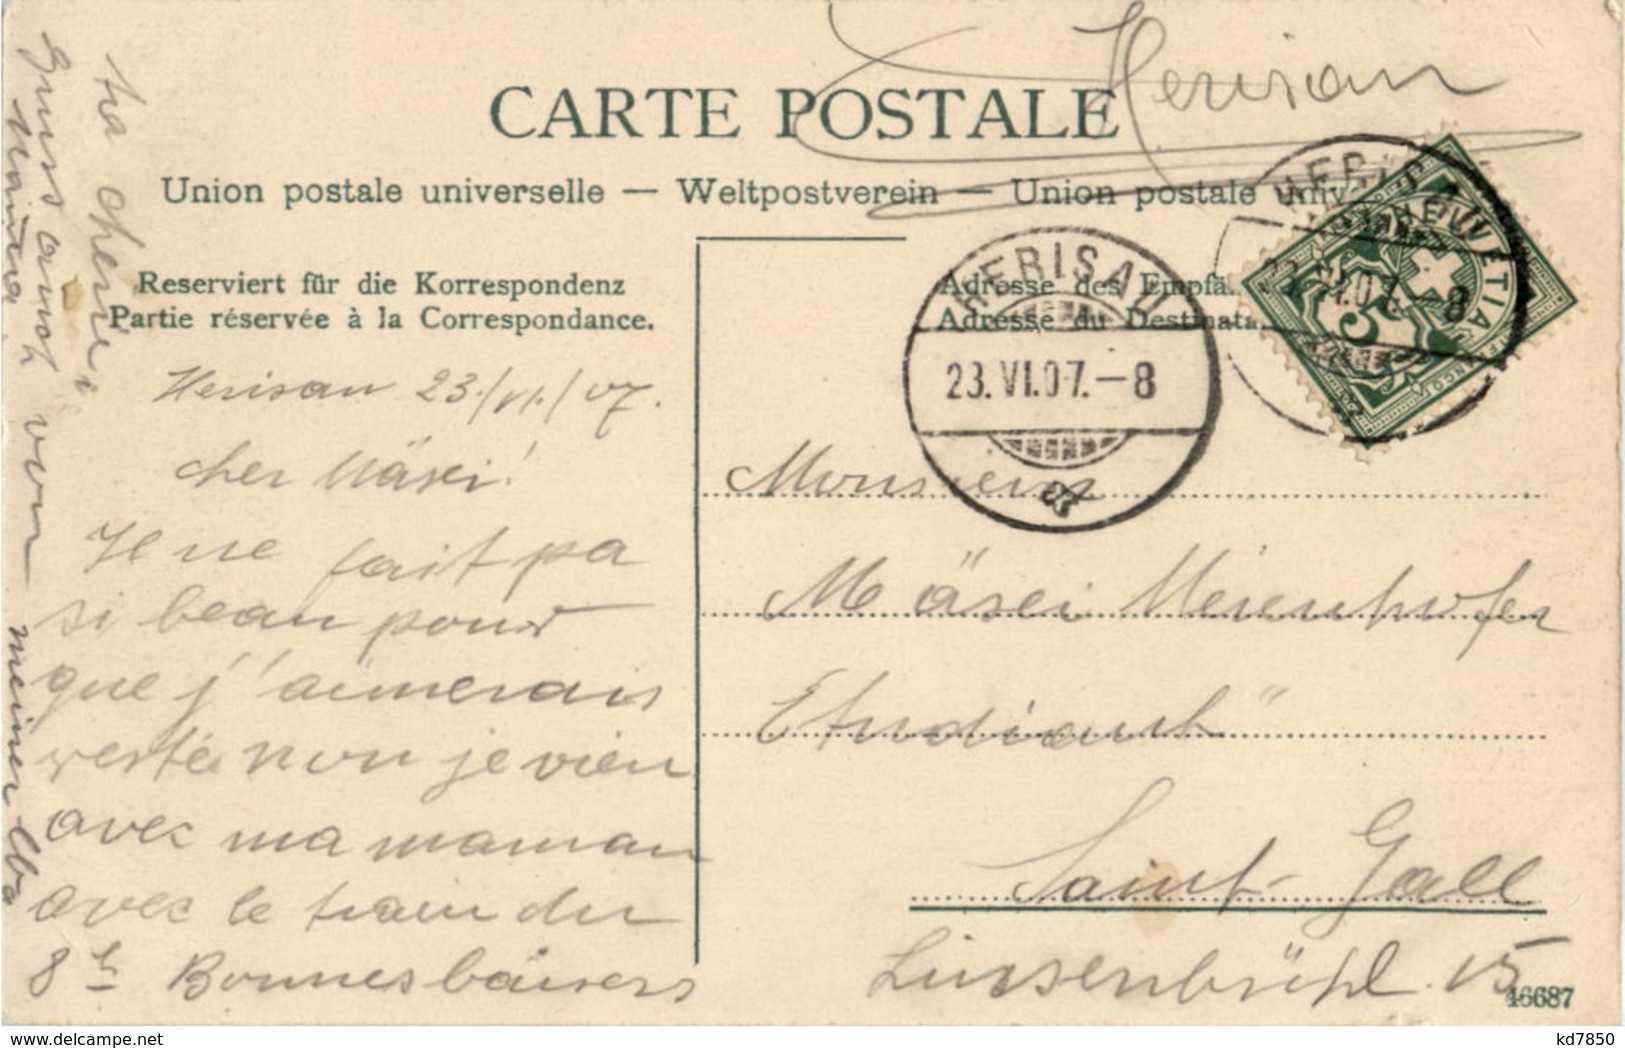 Herisau
CARTE POSTALE
Union postale universelle — Weltpostverein — Union postale univ
Reserviert für die Korrespondenz
Partie réservée à la Correspondance.
Adresse des Empfä
Adresse du Destinata
HERISAU
23.VI.07.–8
HERIS
23.VI.07.–8
HELVETIA
5
Herisau 23./VI./07.
cher Mäsei!
Il ne fait pa
si beau pour
que j'aimerais
resté non je vien
avec ma maman
avec le train du
8 h Bonnes baisers
ta cherie
Gruss auch von
meiner
Monsieur
Mäsei Meienhofer
Etudiant
Saint-Gall
Linsenbühl 15
46687
delcampe.net
kd7850